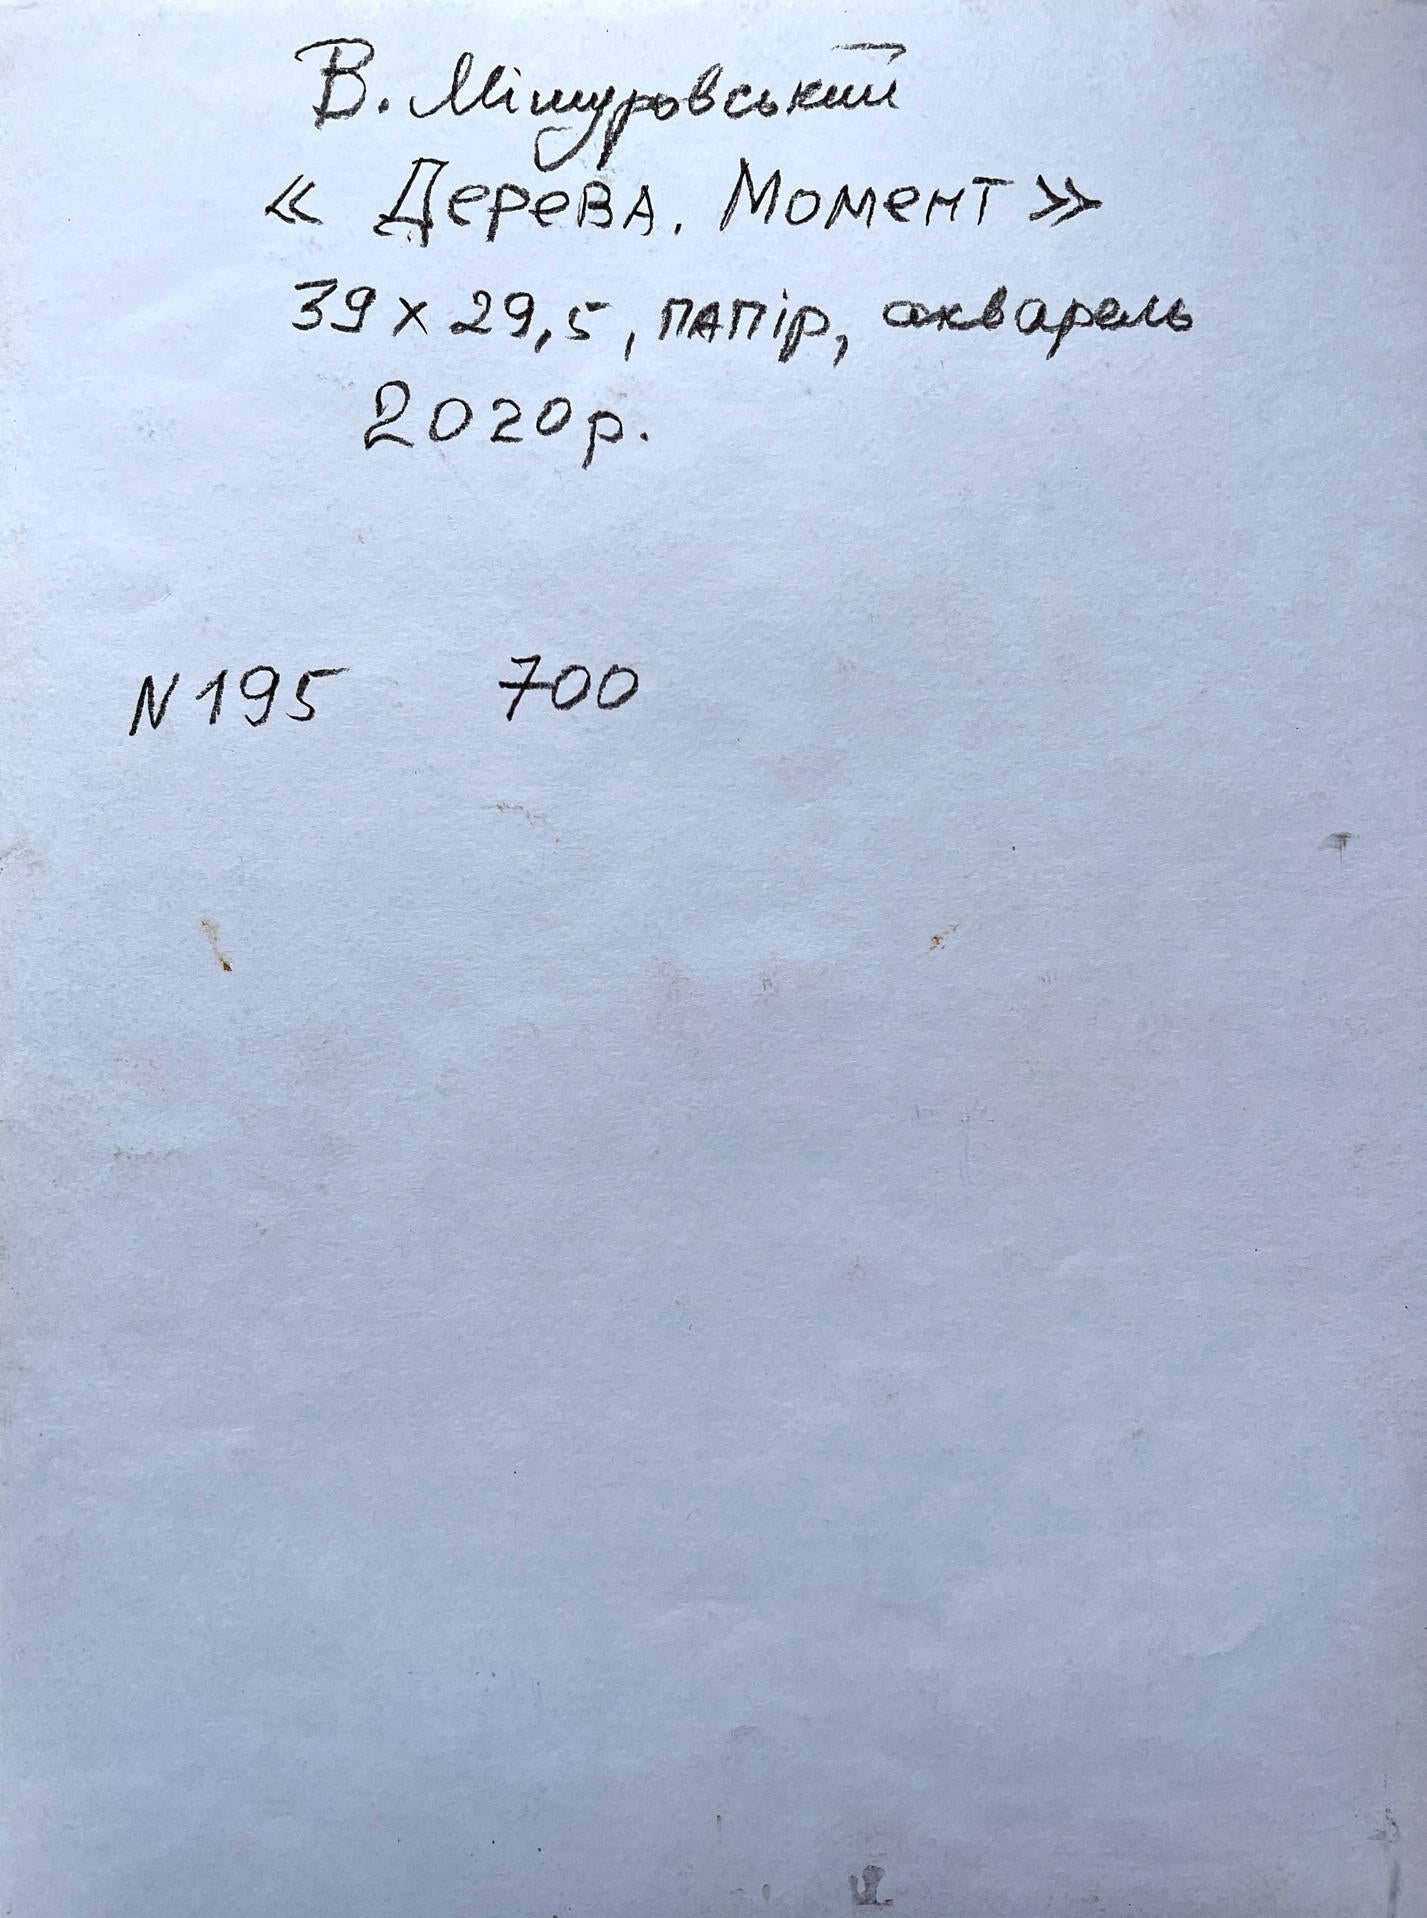 В. Мішуровський
« Дерева. Момент »
39 x 29,5, папір, акварель
2020р.
N 195 700